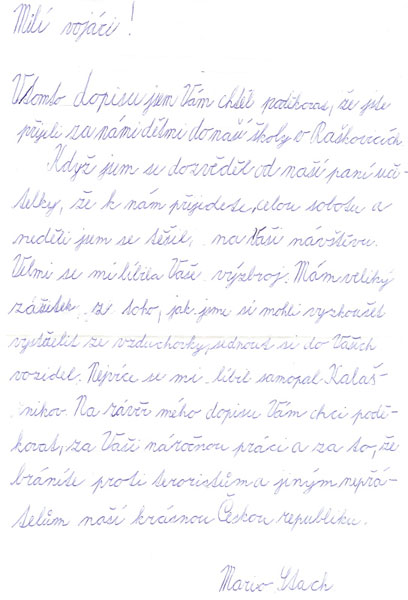 Milí vojáci!
V tomto dopisu jsem Vám chtěl poděkovat, že jste
přijeli za námi dětmi do naší školy v Raškovicích.
Když jsem se dozvěděl od naší paní uči-
telky, že k nám přijedete, celou sobotu a
neděli jsem se těšil na Vaši návštěvu.
Velmi se mi líbila Vaše výzbroj. Mám veliký
zážitek z toho, jak jsme si mohli vyzkoušet
vystřelit ze vzduchovky, sednout si do Vašich
vozidel. Nejvíce se mi líbil samopal Kalaš-
nikov. Na závěr mého dopisu Vám chci podě-
kovat, za Vaši náročnou práci a za to, že
bráníte proti teroristům a jiným nepřá-
telům naší krásnou Českou republiku.
Marco Stach